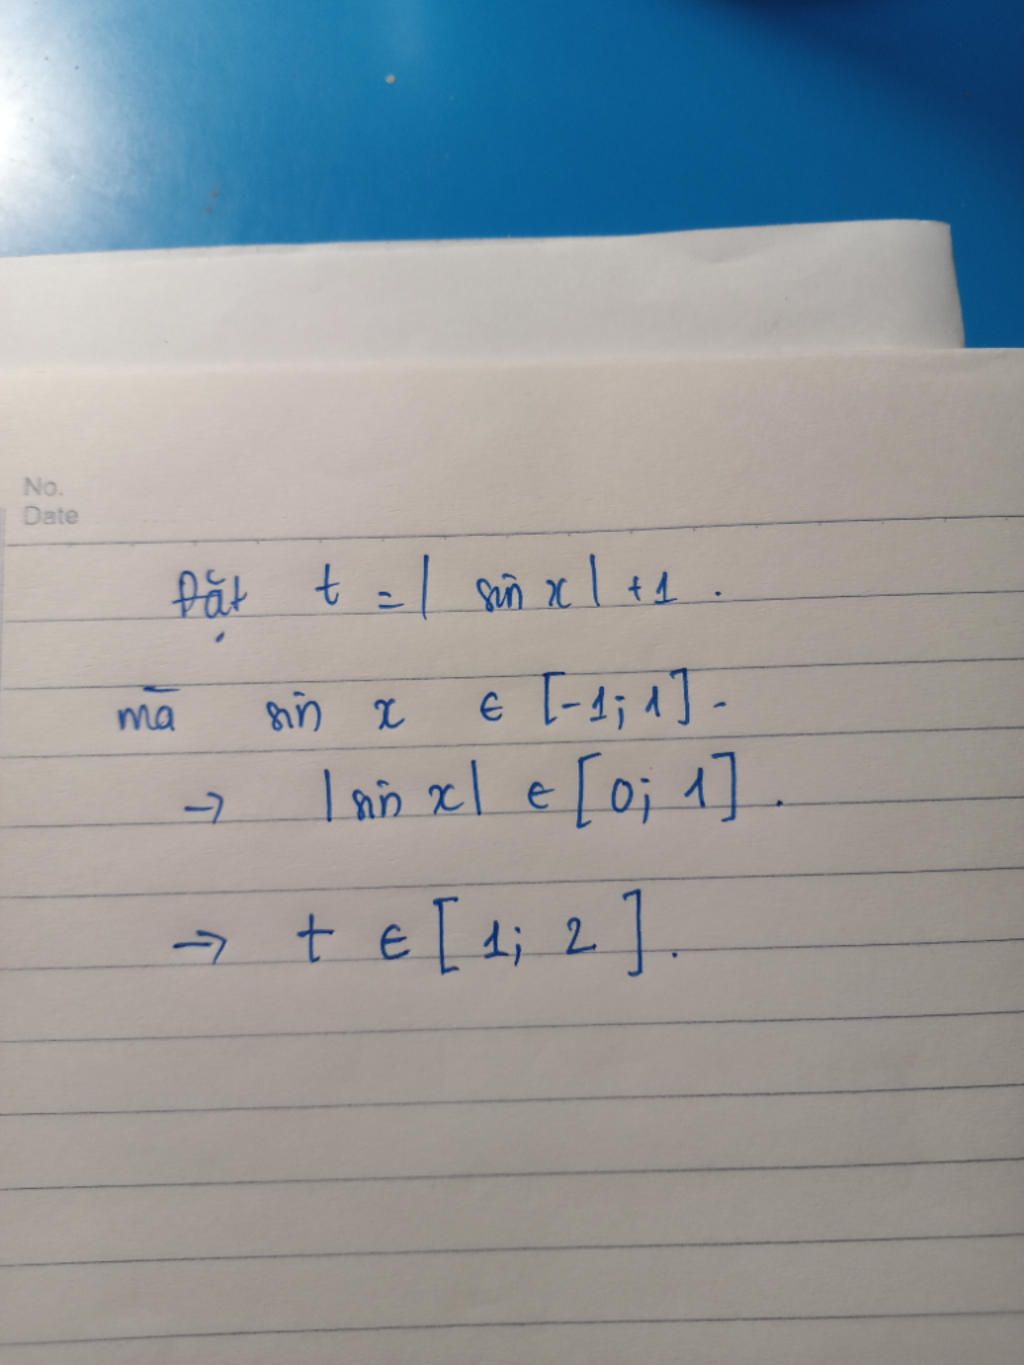 No.
Date
Đặt t = | sin x | + 1 .
mà sin x ∈ [-1; 1] .
→ | sin x | ∈ [ 0; 1 ] .
→ t ∈ [ 1; 2 ] .